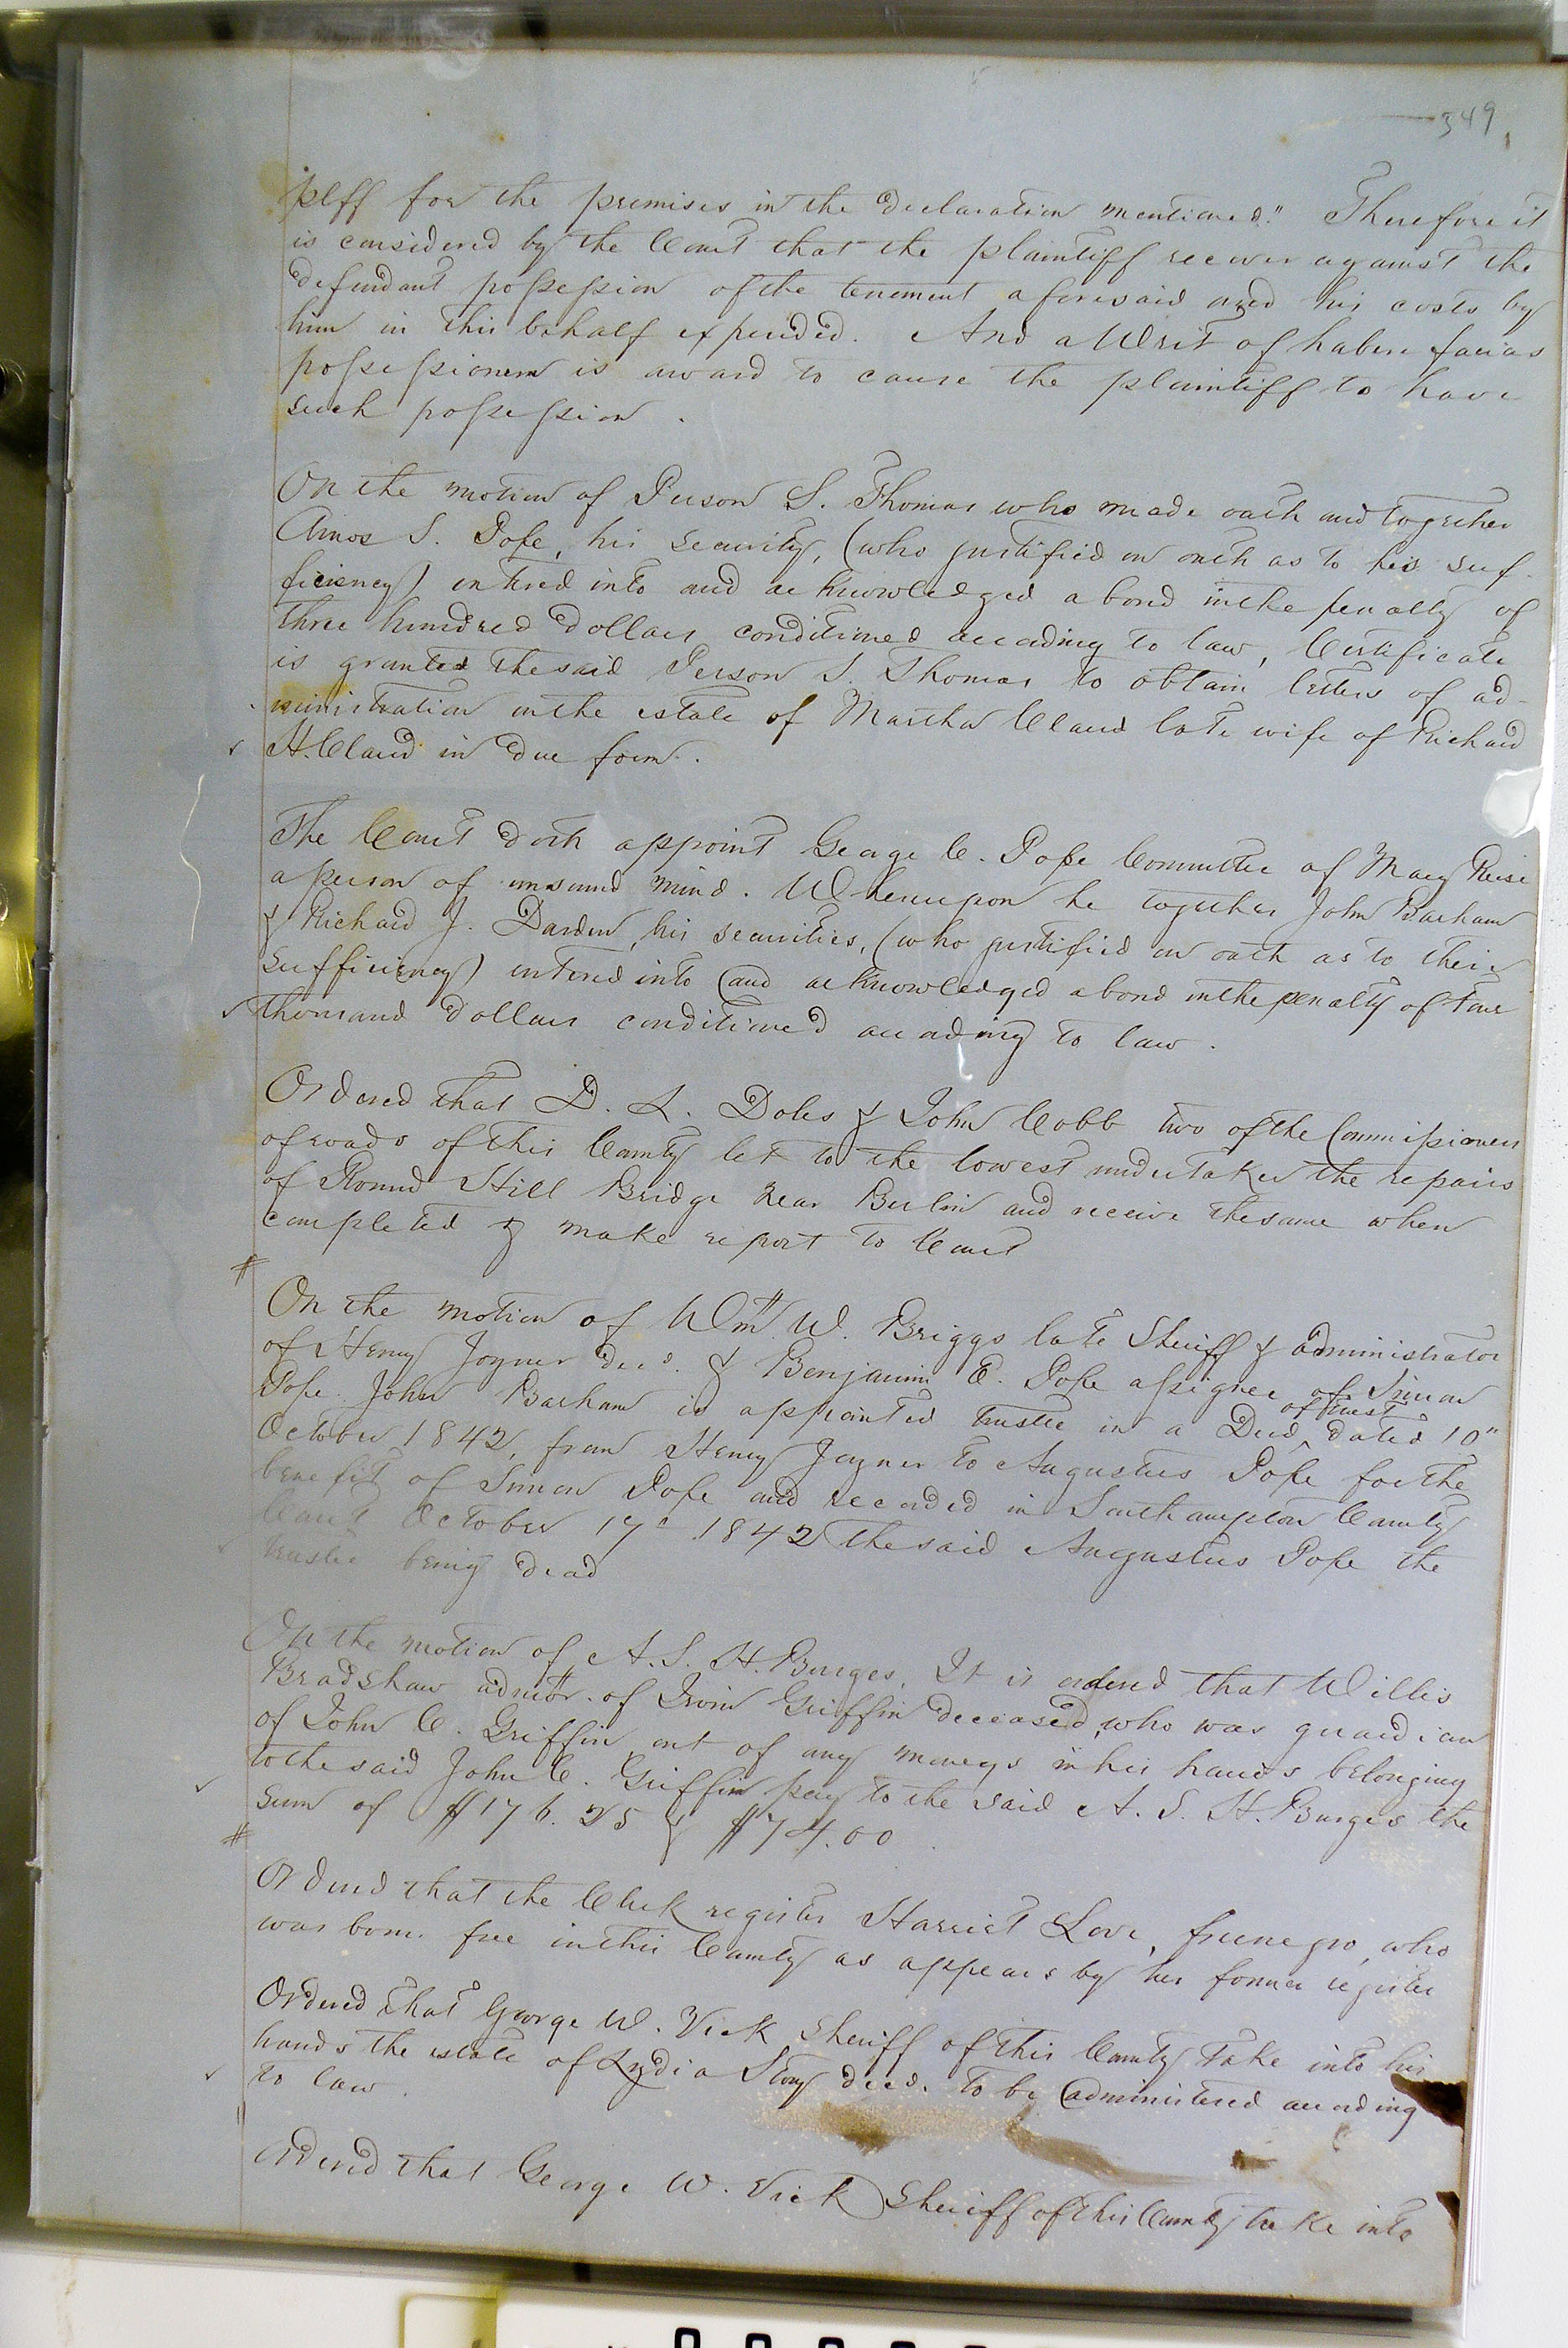 349
plff for the premises in the declaration mentioned." Therefore it
is considered by the Court that the plaintiff recover against the
defendant possession of the tenement aforesaid and his costs by
him in this behalf expended. And a Writ of habere facias
possessionem is award to cause the plaintiff to have
such possession.
On the motion of Person S. Thomas who made oath and together
Amos S. Pope, his security, (who justified on oath as to his suf-
ficiency) entered into and acknowledged a bond in the penalty of
three hundred dollars conditioned according to law, Certificate
is granted the said Person S. Thomas to obtain letters of ad-
ministration on the estate of Martha Claud late wife of Richard
H. Claud in due form.
The Court doth appoint George C. Pope Committee of Mary
a person of unsound mind. Whereupon he together John Barham
& Richard J. Darden, his securities, (who justified on oath as to their
sufficiency) entered into and acknowledged a bond in the penalty of
thousand dollars conditioned according to law.
Ordered that D. L. Doles & John Cobb two of the Commissioners
of roads of this County let to the lowest undertaker the repairs
of Round Hill Bridge near Berlin and receive the same when
completed & make report to Court
#
On the motion of Wm. W. Briggs late Sheriff & administrator
of Henry Joyner decd. & Benjamin E. Pope assignee of Simon
Pope. John Barham is appointed trustee in a Deed of trust dated 10"
October 1842, from Henry Joyner to Augustus Pope for the
benefit of Simon Pope and recorded in Southampton County
Court October 17th 1842 the said Augustus Pope the
trustee being dead
On the motion of A. S. H. Burges, It is ordered that Willis
Bradshaw admor. of Irvin Griffin deceased, who was guardian
of John C. Griffin out of any moneys in his hands belonging
to the said John C. Griffin pay to the said A. S. H. Burges the
sum of $176.25 & $74.00
#
Ordered that the Clerk register Harriet Love, free negro, who
was born free in this County as appears by her former register
Ordered that George W. Vick Sheriff of this County take into his
hands the estate of Lydia Story decd. to be administered according
to law.
Ordered that George W. Vick Sheriff of this County take into